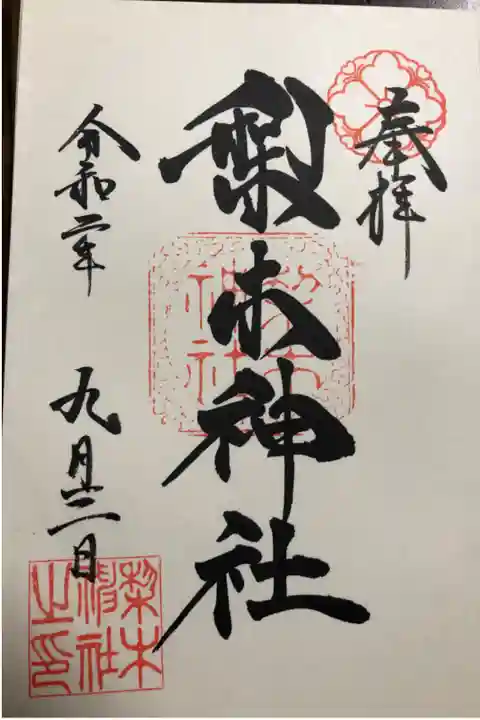 奉拝
梨木神社
令和二年
九月日
梨木
神社
梨木
神社
之印